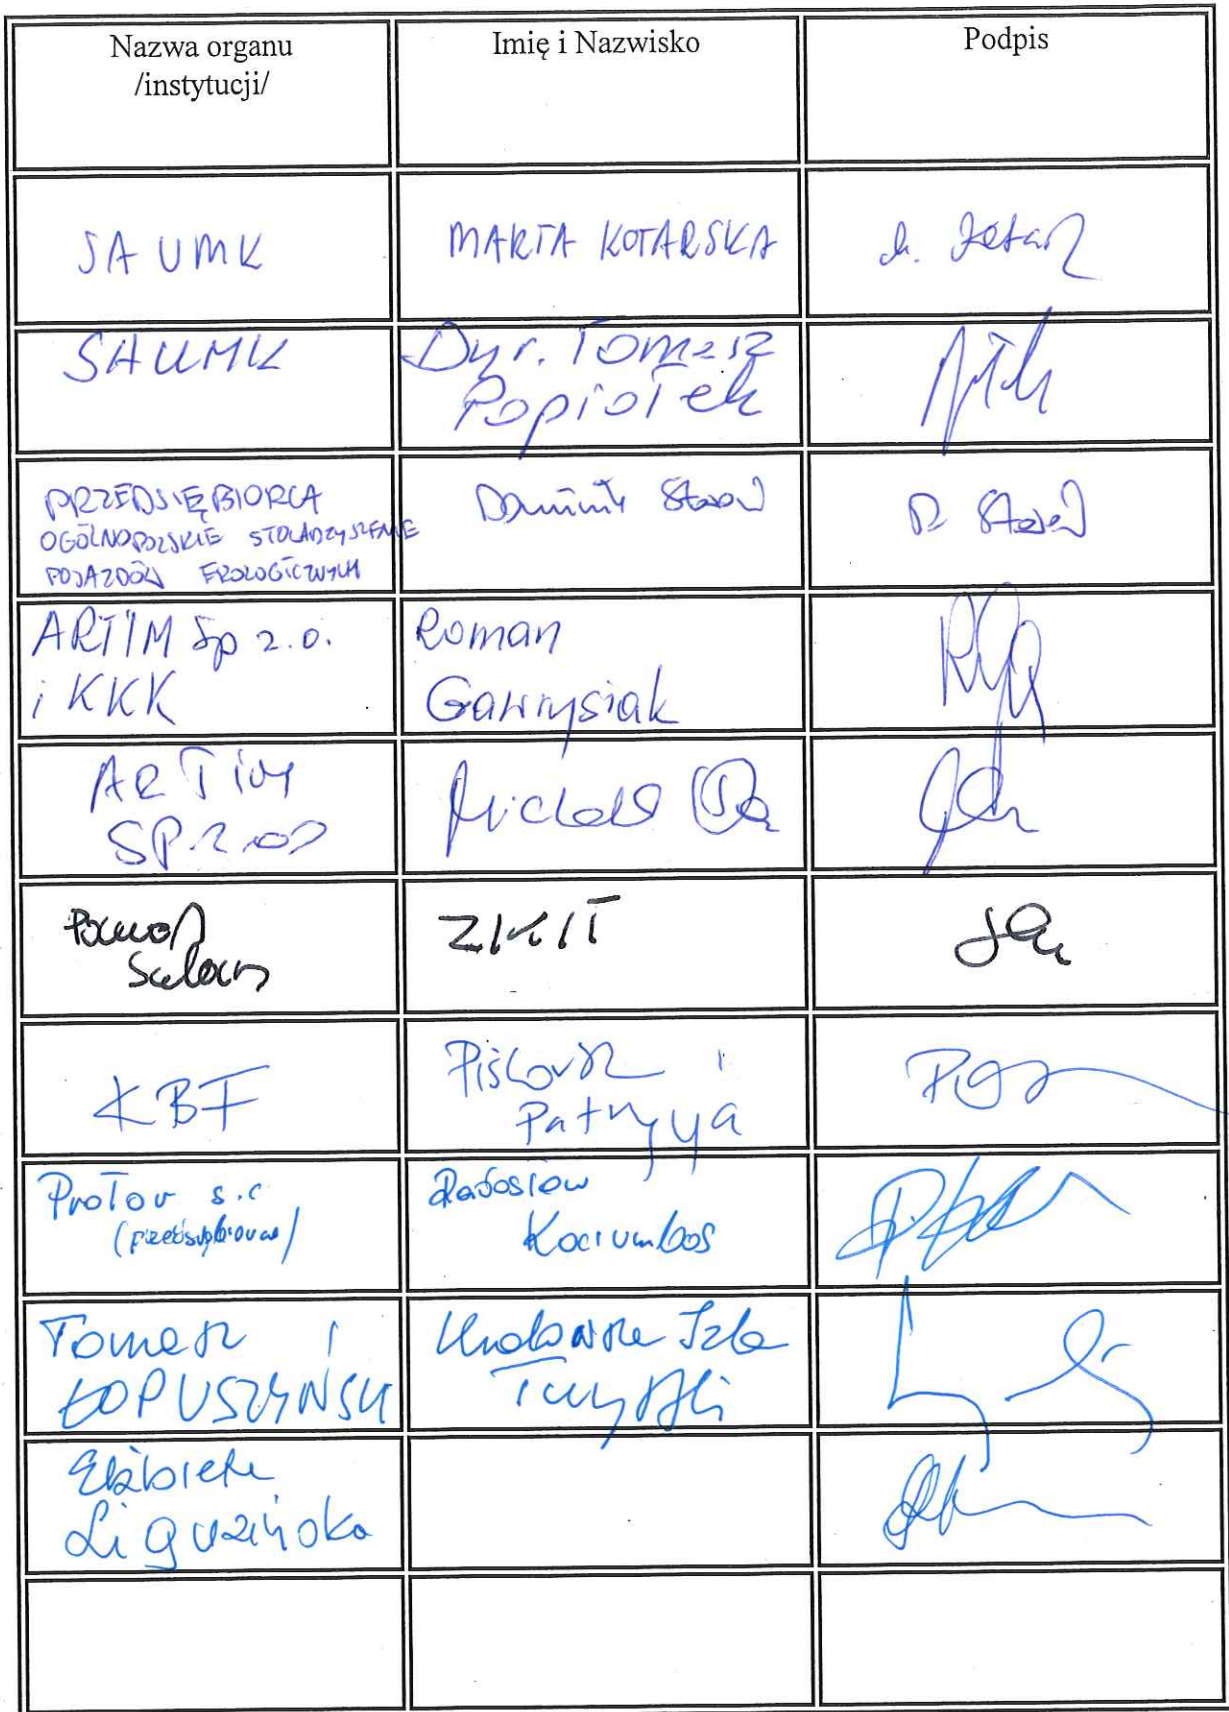 Nazwa organu
/instytucji/
Imię i Nazwisko
Podpis
SA UMK
MARTA KOTARSKA
SAUMK
Dyr. Tomasz
Popiołek
PRZEDSIĘBIORCA
OGÓLNOPOLSKIE STOWARZYSZENIE
POJAZDÓW EKOLOGICZNYCH
Dominik
ARTIM Sp z.o.
i KKK
Roman
Gawrysiak
ARTIM
SP z.oo
Michał
ZIKIT
KBF
Patrycja
ProTour s.c
(przedsiębiorca)
Radosław
Kociumbas
Tomasz
ŁOPUSZYŃSKI
Krakowska Izba
Turystyki
Elżbieta
Liguzińska